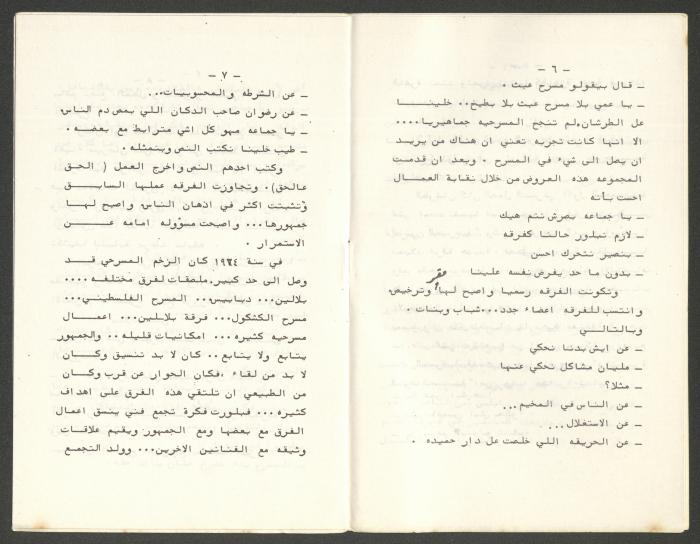 - ٦ -
- قال بيقولو مسرح عبث .
- يا عمي بلا مسرح عبث بلا بطيخ.. خلينا
عل الطرشان. لم تنجح المسرحيه جماهيريا....
الا انها كانت تجربه تغني ان هناك من يريد
ان يصل الى شيء في المسرح . وبعد ان قدمت
المجموعه هذه العروض من خلال نقابة العمال
احست بأنه
- يا جماعه بصرش نتم هيك
- لازم نبلور حالنا كفرقه
- بنصير نتحرك احسن
- بدون ما حد يفرض نفسه علينا
وتكونت الفرقه رسميا واصبح لها مقر وترخيص
وانتسب للفرقه اعضاء جدد...شباب وبنات .
وبالتالي
- عن ايش بدنا نحكي
- مليان مشاكل نحكي عنها
- مثلا؟
- عن الناس في المخيم...
- عن الاستغلال...
- عن الحريقه اللي خلصت عل دار حميده .
- ٧ -
- عن الشرطه والمحسوبيات...
- عن رضوان صاحب الدكان اللي بمص دم الناس.
- يا جماعه مهو كل اشي مترابط مع بعضه .
- طيب خلينا نكتب النص وبنمثله .
وكتب احدهم النص واخرج العمل ( الحق
عالحق). وتجاوزت الفرقه عملها السابق
وتثبتت اكثر في اذهان الناس واصبح لها
جمهورها... واصبحت مسؤوله امامه عن
الاستمرار .
في سنة ١٩٧٤ كان الزخم المسرحي قد
وصل الى حد كبير. ملصقات لفرق مختلفه....
بلالين... دبابيس.. المسرح الفلسطيني...
مسرح الكشكول... فرقة بلالين... اعمال
مسرحيه كثيره... امكانيات قليله .. والجمهور
يتابع ولا يتابع.. كان لا بد تنسيق وكان
لا بد من لقاء ، فكان الحوار عن قرب وكان
من الطبيعي ان تلتقي هذه الفرق على اهداف
كثيره... فبلورت فكرة تجمع فني ينسق اعمال
الفرق مع بعضها ومع الجمهور ويقيم علاقات
وثيقه مع الفنانين الاخرين... وولد التجمع